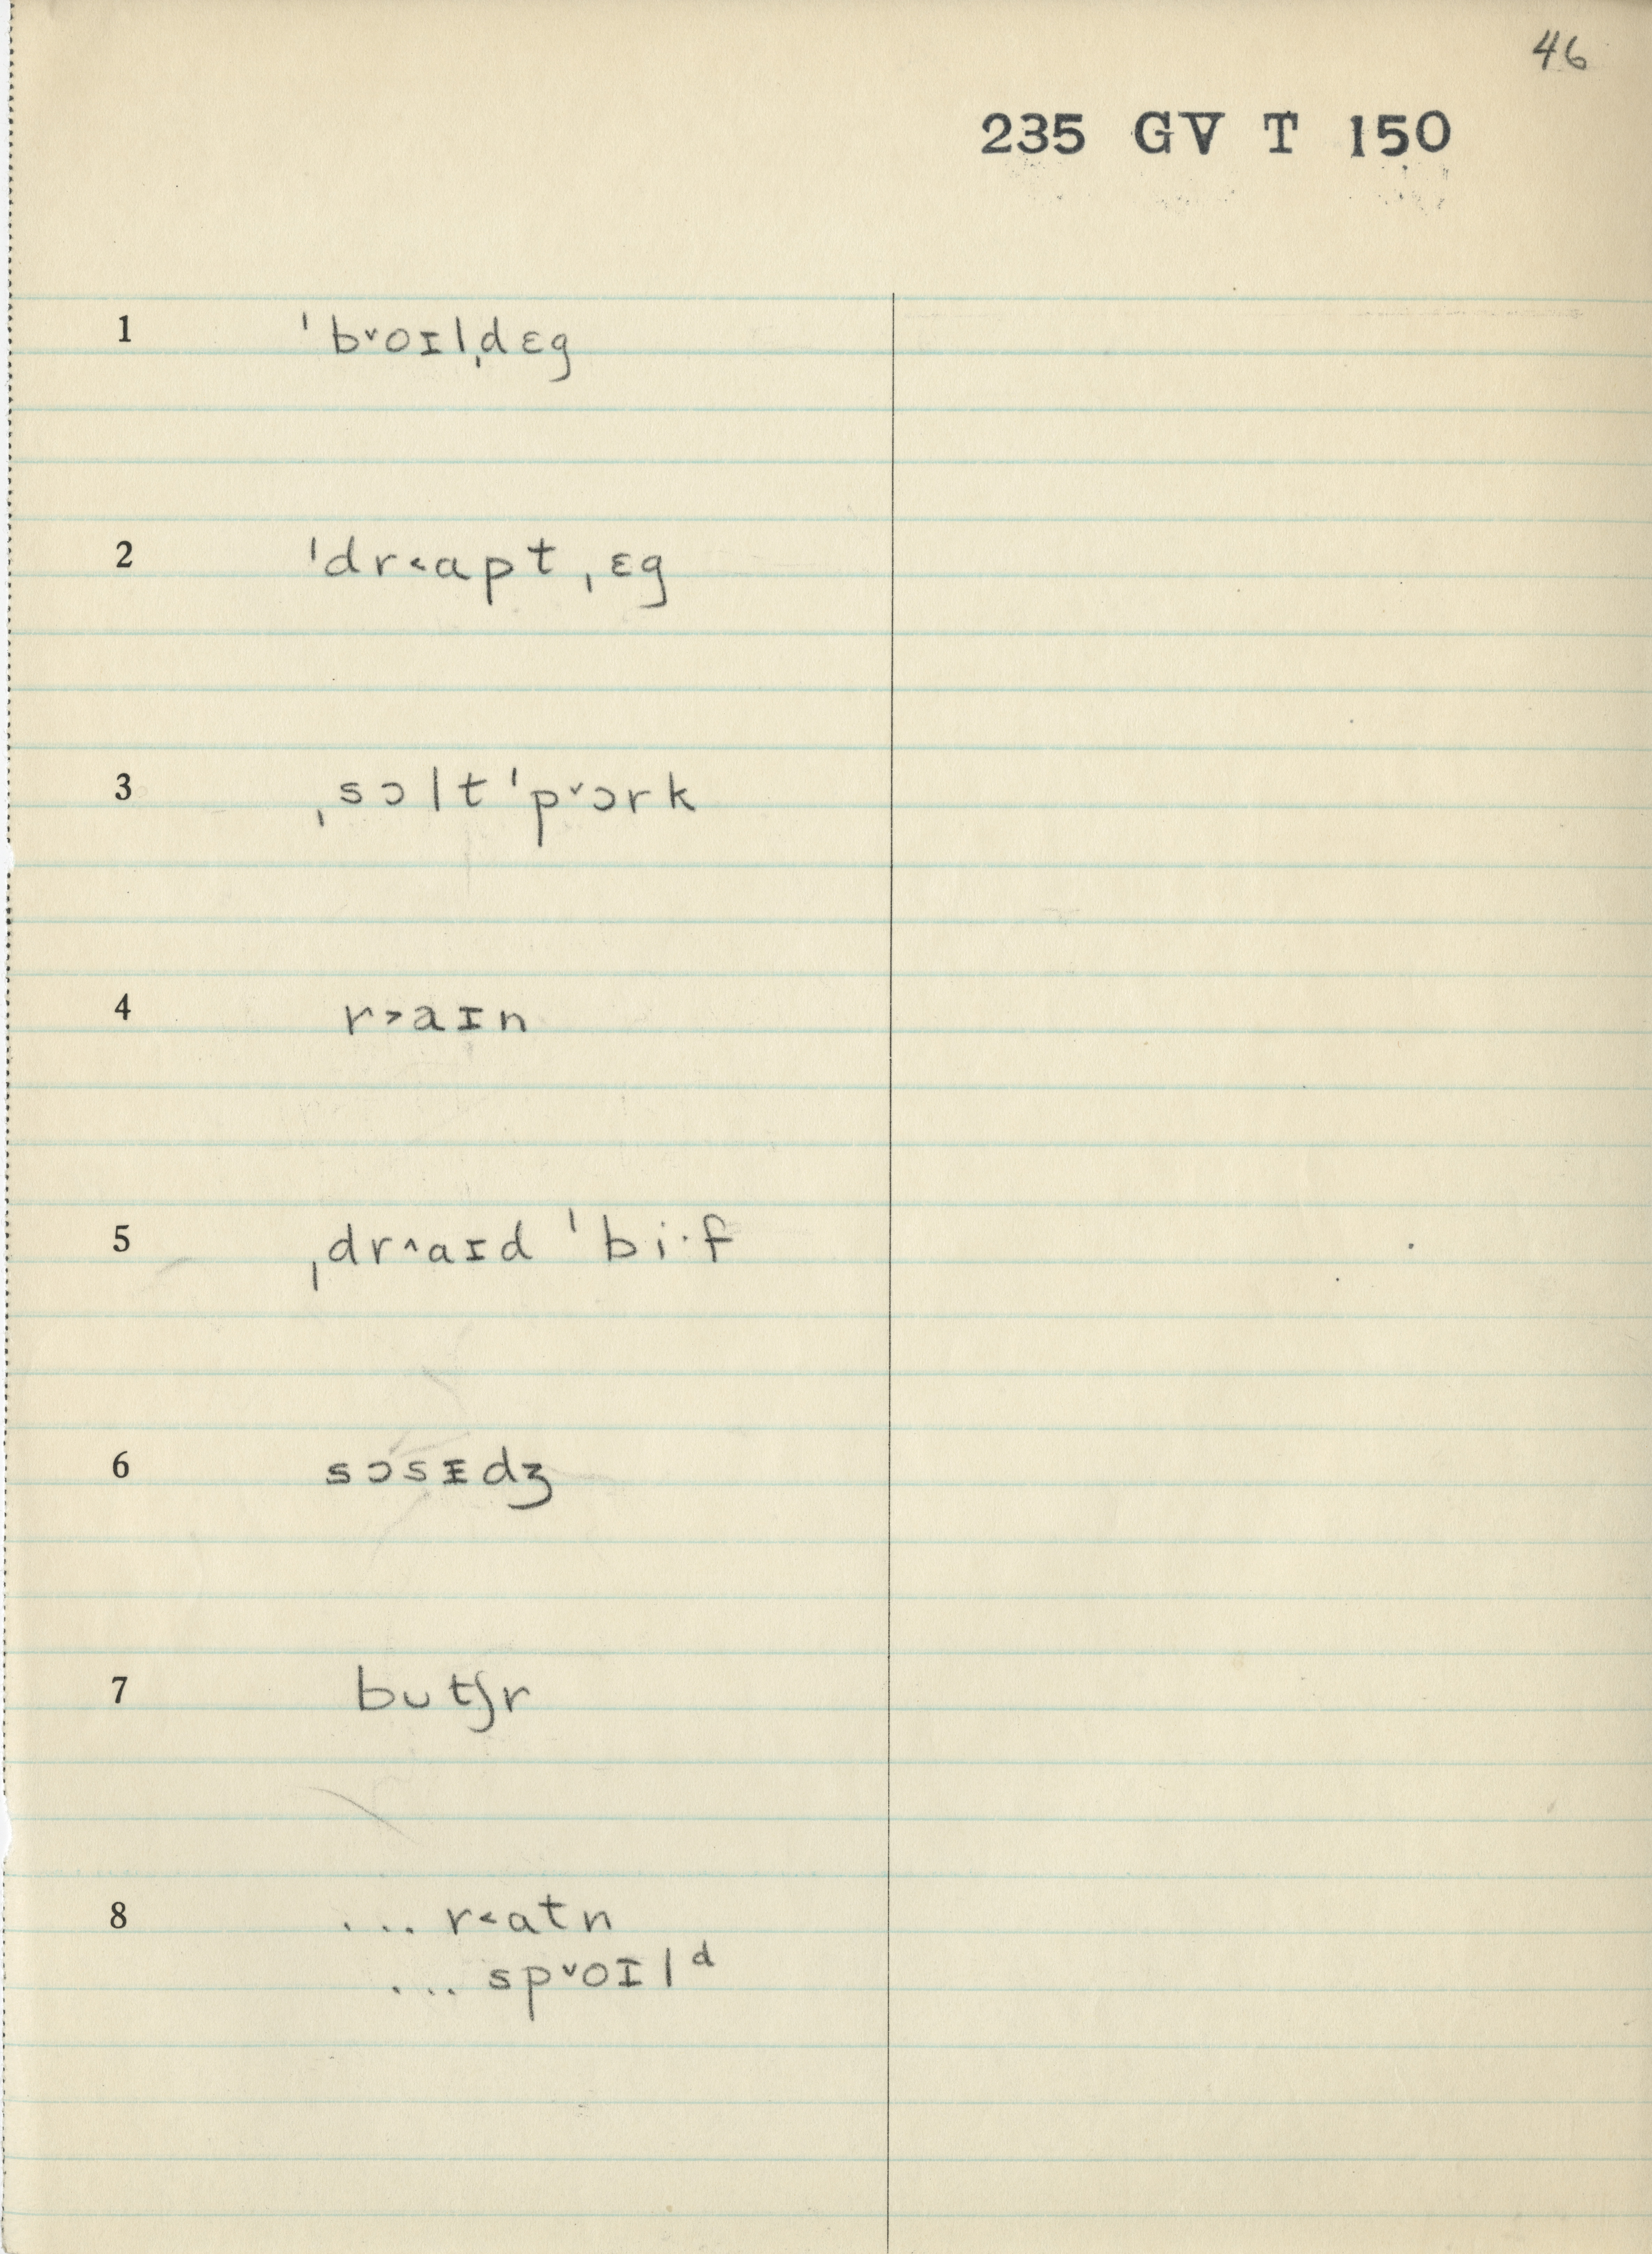 46
235 GV T 150
1 ˈb˅oɪlˌdɛg
2 ˈdr˂apt ˌɛg
3 ˌsɔlt ˈp˅ɔrk
4 r˃aɪn
5 ˌdr˄aɪd ˈbi·f
6 sɔsᵻdʒ
7 bʊtʃr
8 ... r˂atn
... sp˅oɪlᵈ